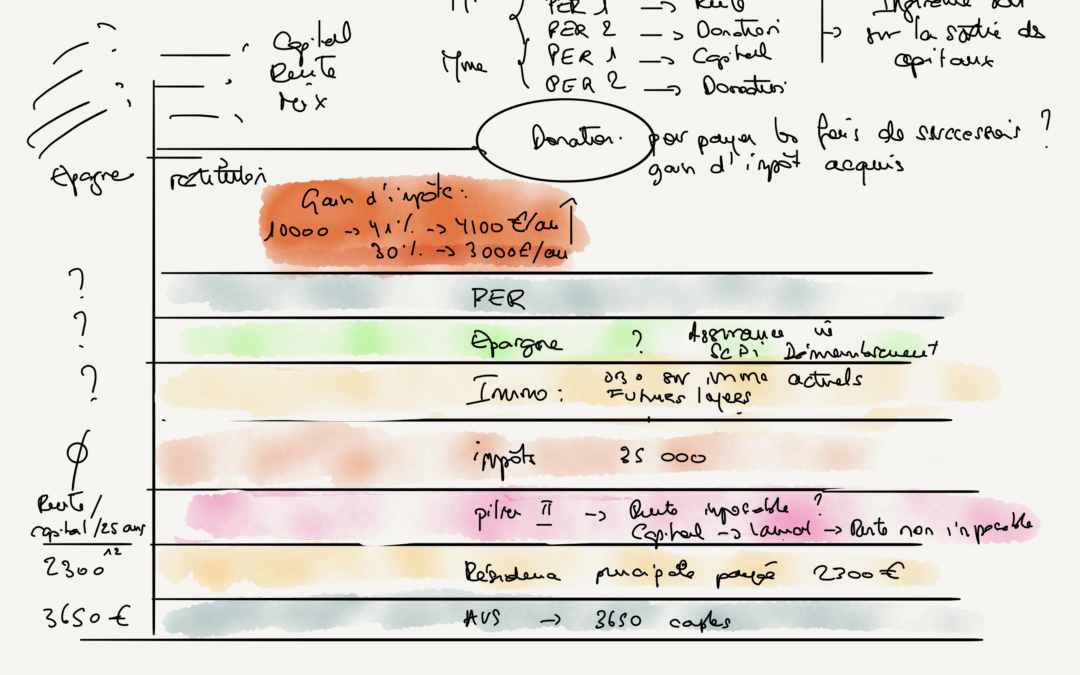 PER 1 → Rente
PER 2 → Donation
Mme
PER 1 → Capital
PER 2 → Donation
sur la sortie des
capitaux
Capital
Rente
Mix
Donation
por payer les frais de succession ?
gain d'impôt acquis
Epargne
restitution
Gain d'impôts :
10000 → 41 % → 4100 €/an
30 % → 3000 €/an
?
PER
?
Epargne ? Assurance vie
SCPI Démembrement
?
Immo : sur immo actuels
Futures loyers
Ø
impôts 35 000
Rente /
capital /25 ans
12
pilier II → Rente imposable ?
Capital → → Rente non imposable
2300
Résidence principale payée 2300 €
3650 €
AVS → 3650 couples